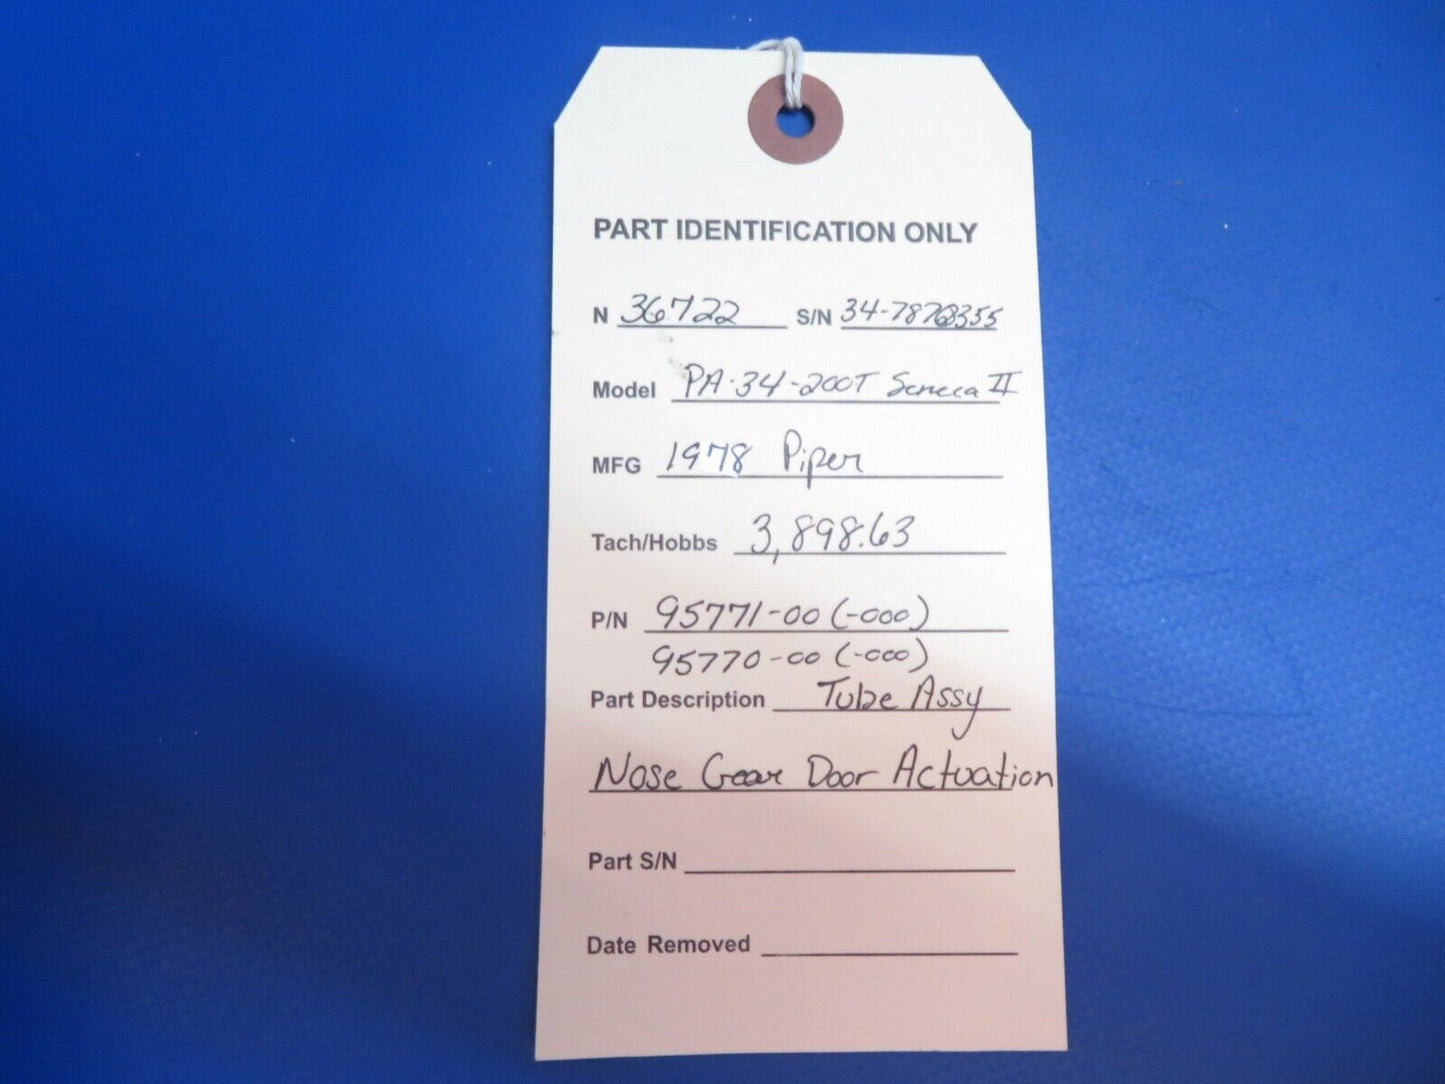 PART IDENTIFICATION ONLY
N 36722 S/N 34-7870355
Model PA-34-200T Seneca II
MFG 1978 Piper
Tach/Hobbs 3,898.63
P/N 95771-00 (-000)
95770-00 (-000)
Part Description Tube Assy
Nose Gear Door Actuation
Part S/N
Date Removed